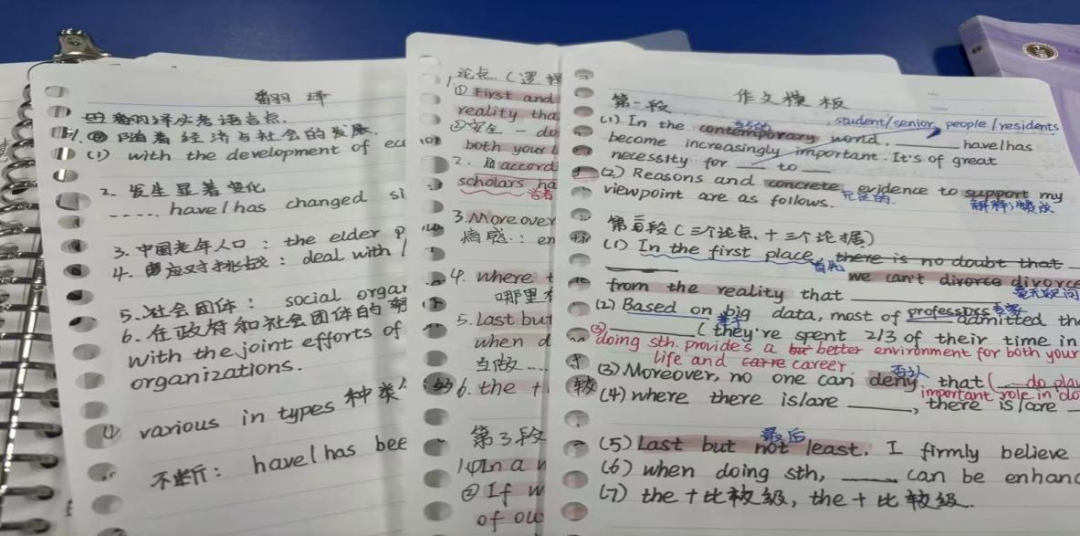 翻译
随着经济与社会的发展
(1) with the development of
2. 发生显著变化
have/has changed
3. 中国老年人口: the elder
4. 应对挑战: deal with
5. 社会团体: social
6. 在政府和社会团体的
with the joint efforts of
organizations.
various in types 种类
不断: have/has
论点
① First and
reality
both your
2.
scholars
3. Moreover
4. where
哪里
5. Last but
when
当做
6. the +
第3段
In a
② If
of
作文模板
第一段
student/senior people/residents
(1) In the contemporary world, ____ have/has
become increasingly important. It's of great
necessity for ____ to ____
(2) Reasons and concrete evidence to support my
viewpoint are as follows.
第二段(三个论点、十三个论据)
(1) In the first place, there is no doubt that
首先
we can't divorce divorce
from the reality that
(2) Based on big data, most of professors admitted
基于
(they're spent 2/3 of their time in
doing sth. provides a better environment for both your
life and career.
否认
(3) Moreover, no one can deny that (____ do
important role in
(4) where there is/are ____, there is/are
最后
(5) Last but not least, I firmly believe
(6) when doing sth, ____ can be
(7) the + 比较级, the + 比较级.